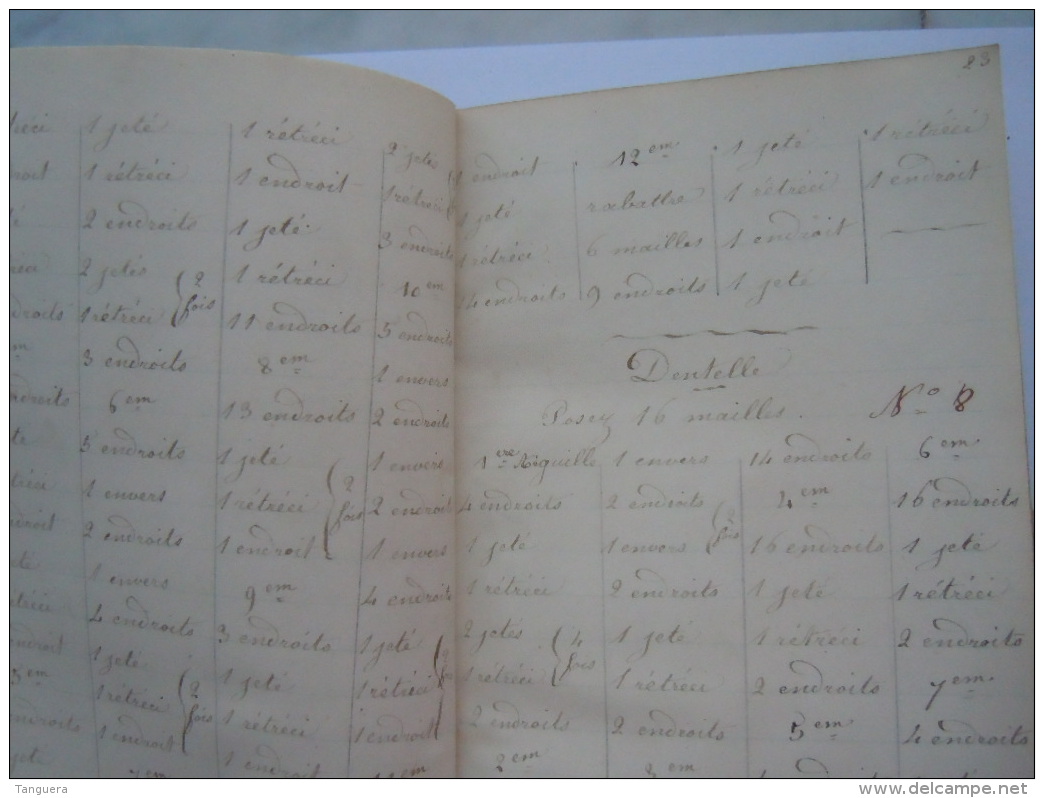 1 jeté
1 rétréci
2 endroits
2 jetés
1 rétréci } 2 fois
3 endroits
6em
5 endroits
1 envers
2 endroits
1 envers
4 endroits
1 jeté
1 rétréci } 2 fois
1 endroit
1 rétréci
1 endroit
1 jeté
1 rétréci
11 endroits
8em
13 endroits
1 jeté
1 rétréci } 2 fois
1 endroit
9em
3 endroits
1 jeté
1 rétréci
1 endroit
2 jetés
1 rétréci
3 endroits
10em
5 endroits
1 envers
2 endroits
1 envers
2 endroits
1 envers
4 endroits
1 jeté
1 rétréci
1 endroit
23
1 endroit
1 jeté
1 rétréci
14 endroits
12em
rabattre
6 mailles
9 endroits
1 jeté
1 rétréci
1 endroit
1 jeté
1 rétréci
1 endroit
Dentelle
Posez 16 mailles. No 8
1ere Aiguille
4 endroits
1 jeté
1 rétréci
2 jetés
1 rétréci } 4 fois
2 endroits
2em
1 envers
2 endroits
1 envers } 2 fois
2 endroits
1 jeté
1 rétréci
2 endroits
3em
14 endroits
4em
16 endroits
1 jeté
1 rétréci
2 endroits
5em
4 endroits
6em
16 endroits
1 jeté
1 rétréci
2 endroits
7em
4 endroits
Tanguera
delcampe.net